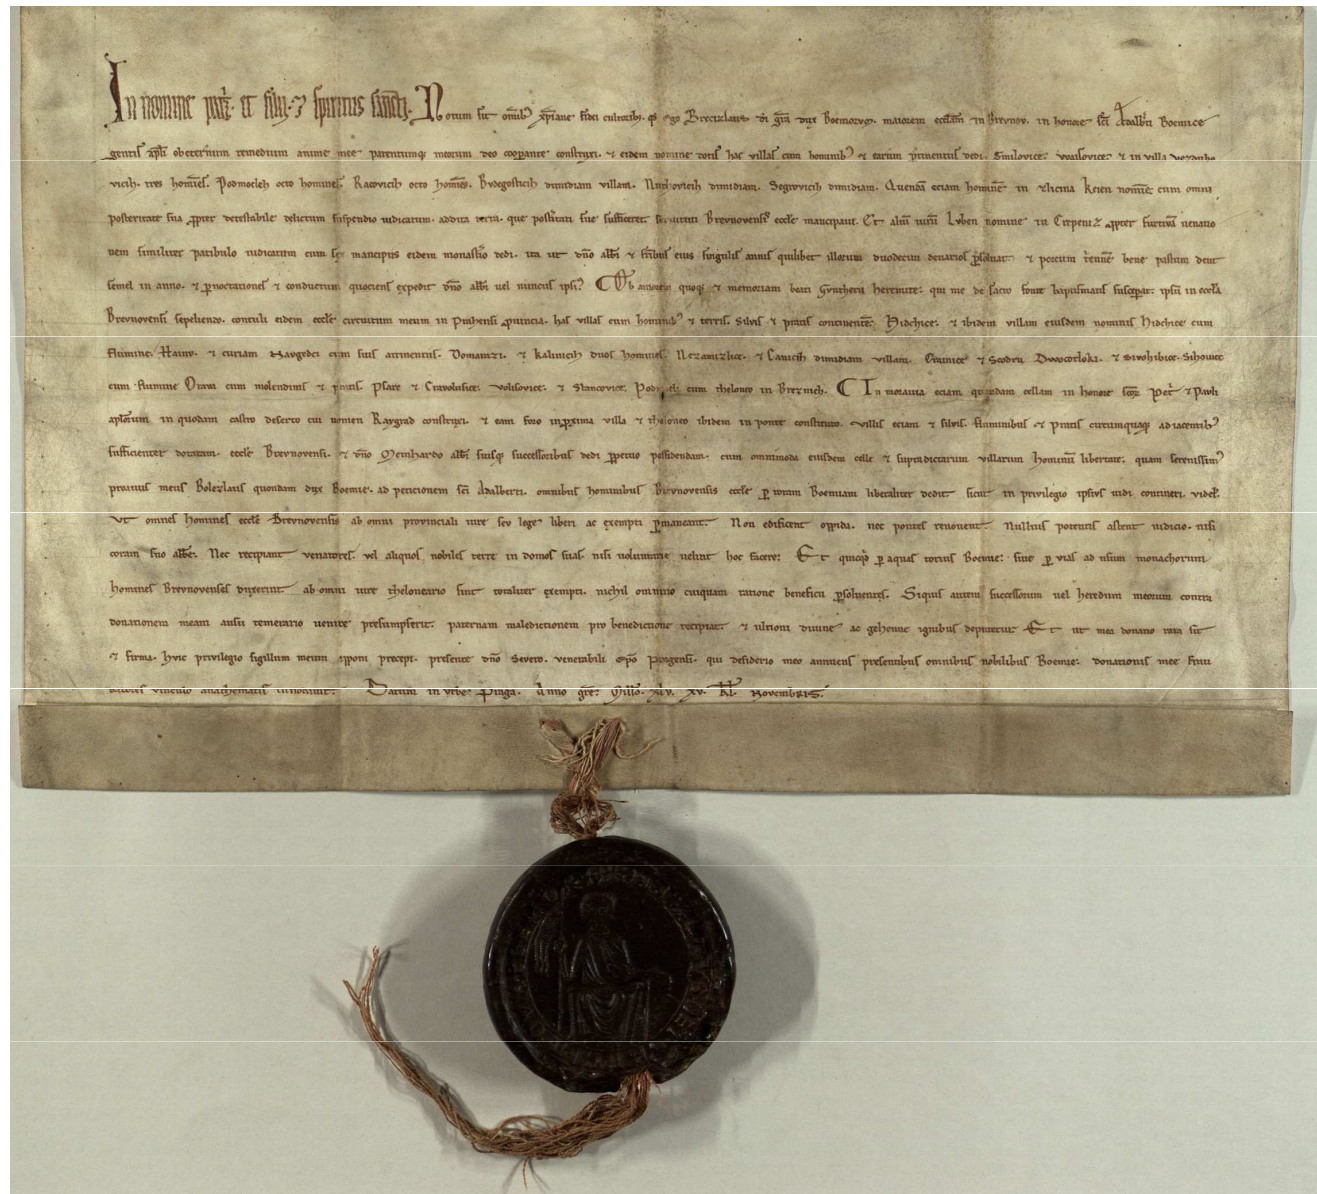 In nomine patris et filii et spiritus sancti. Notum sit omnibus xpiane fidei cultoribus. qd ego Brecizlaus di gra dux Boemorum. maiorem ecclam in Brevnov. in honore sci Adalberti Boemice
gentis apli ob eternum remedium anime mee parentumq; meorum deo cooperante construxi. et eidem nomine dotis has villas cum hominib; et earum pertinentiis dedi. Smilovice. et in villa
vicih. tres homines. Podmocleh octo homines. Racovicih octo homines. Bydegosticih dimidiam villam. Nuchovicih dimidiam. Segrovicih dimidiam. Quendam eciam hominem in zlicina Keien nomine cum omni
posteritate sua propter detestabile delictum suspendio iudicatum. addita terra. que posteritati sue sufficeret servituti Brevnovensis eccle mancipaui. Et alium uirum Lyben nomine in propter furtivam venatio
nem similiter patibulo iudicatum cum sex mancipiis eidem monasterio dedi. ita ut dno abbi et fribus eius singulis annis quilibet illorum duodecim denarios persoluat. et porcum bene pastum dent
semel in anno. et pernoctationes et conductum quociens expedit dno abbi uel nunciis ipsius. Ob amorem quoq; et memoriam beati Gvntherii heremite. qui me de sacro fonte baptismatis susceperat. ipsum in eccla
Brevnovensi sepeliendo. contuli eidem eccle circuitum meum in prouincia. has villas cum hominib; et terris. silvis et pratis continentem. Hidchice. et ibidem villam eiusdem nominis Hidchice cum
flumine. et curiam cum suis attinentiis. Domamzi. et Kalinicih duos homines. Nezamizlice. et Canicih dimidiam villam. et Scodra Dwocorloki. et Sirohibice. Sihovice
cum flumine Otava cum molendinis et pratis. Psare et Cravolusice. Volisovice. et Stancovice. cum theloneo in Breznich. In moravia eciam quandam cellam in honore scorum Petri et Pavli
aplorum. in quodam castro deserto cui nomen Raygrad construxi. et eam foro in proxima villa et theloneo ibidem in ponte constituto. villis eciam et silvis. fluminibus et pratis circumquaq; adiacentib;
sufficienter dotatam. eccle Brevnovensi. et dno Meinhardo abbi suisq; successoribus dedi perpetuo possidendam. cum omnimoda eiusdem celle et supradictarum villarum hominum libertate. quam serenissimus
proauus meus Bolezlaus quondam dux Boemie. ad peticionem sci Adalberti. omnibus hominibus Brevnovensis eccle per totam Boemiam liberaliter dedit sicut in privilegio ipsius uidi contineri. videl.
Vt omnes homines eccle Brevnovensis ab omni provinciali iure sev lege liberi ac exempti permaneant. Non edificent oppida. nec pontes renouent. Nullius potentis astent iudicio. nisi
coram suo abbe. Nec recipiant venatores. vel aliquos nobiles terre in domos suas nisi uoluntarie uelint hoc facere. Et quicquid per aquas totius Boemie. siue per vias ad usum monachorum
homines Brevnovenses duxerint ab omni iure theloneario sint totaliter exempti. nichil omnino cuiquam ratione beneficii persoluentes. Siquis autem successorum uel heredum meorum contra
donationem meam ausu temerario uenire presumpserit. paternam maledictionem pro benedictione recipiat. et ultioni divine ac gehenne ignibus deputetur. Et ut mea donatio rata sit
et firma. hvic privilegio sigillum meum apponi precepi. presente dno Severo. venerabili epo Pragensi. qui desiderio meo annuens presentibus omnibus nobilibus Boemie. donationis mee
vinculo anathematis innodauit. Datum in urbe Praga. Anno gre. Millo. xlv. xv. Kl. Novembris.